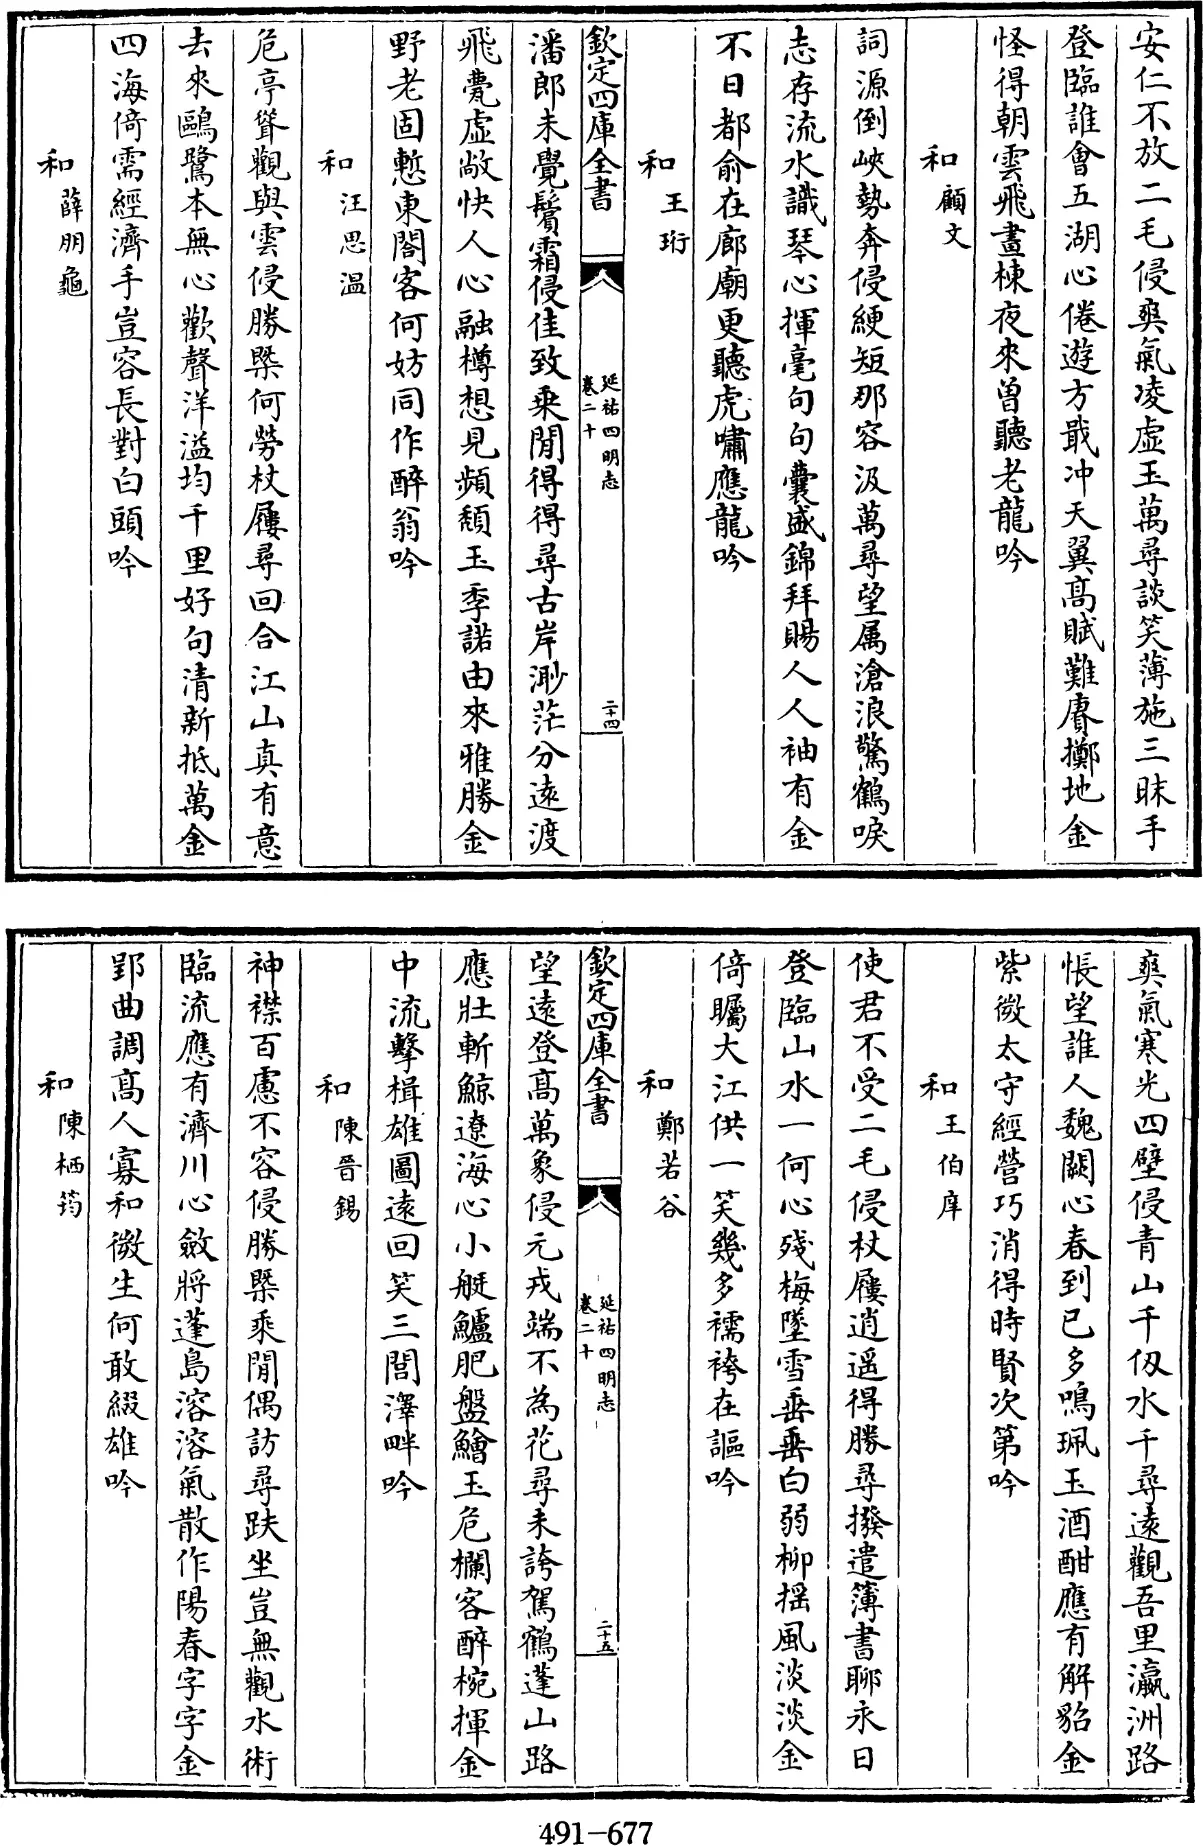 安仁不放二毛侵爽氣凌虚玉萬尋談笑薄施三昧手
登臨誰會五湖心倦遊方戢冲天翼髙賦難賡擲地金
怪得朝雲飛畫棟夜來曽聽老龍吟
和顧文
詞源倒峽勢奔侵綆短那容汲萬尋望属滄浪驚鶴唳
志存流水識琴心揮毫句句囊盛錦拜賜人人袖有金
不日都俞在廊廟更聽虎嘯應龍吟
和王珩
欽定四庫全書
延祐四明志
卷二十
二十四
潘郎未覺鬢霜侵佳致乗閒得得尋古岸渺茫分逺渡
飛甍虚敞快人心融樽想見頻頽玉季諾由來雅勝金
野老固慙東閣客何妨同作醉翁吟
和汪思温
危亭聳觀與雲侵勝槩何勞杖屨尋回合江山真有意
去來鷗鷺本無心歡聲洋溢均千里好句清新抵萬金
四海倚需經濟手豈容長對白頭吟
和薛朋龜
爽氣寒光四壁侵青山千仭水千尋逺觀吾里瀛洲路
悵望誰人魏闕心春到已多鳴珮玉酒酣應有解貂金
紫微太守經營巧消得時賢次第吟
和王伯庠
使君不受二毛侵杖屨逍遥得勝尋撥遣簿書聊永日
登臨山水一何心殘梅墜雪垂垂白弱栁揺風淡淡金
倚矚大江供一笑幾多襦袴在謳吟
和鄭若谷
欽定四庫全書
延祐四明志
卷二十
二十五
望逺登髙萬象侵元戎端不為花尋未誇駕鶴蓬山路
應壯斬鯨遼海心小艇鱸肥盤鱠玉危欄客醉椀揮金
中流擊楫雄圖逺回笑三閭澤畔吟
和陳晉錫
神襟百慮不容侵勝槩乘閒偶訪尋趺坐豈無觀水術
臨流應有濟川心斂將蓬島溶溶氣散作陽春字字金
郢曲調髙人寡和微生何敢綴雄吟
和陳栖筠
491-677